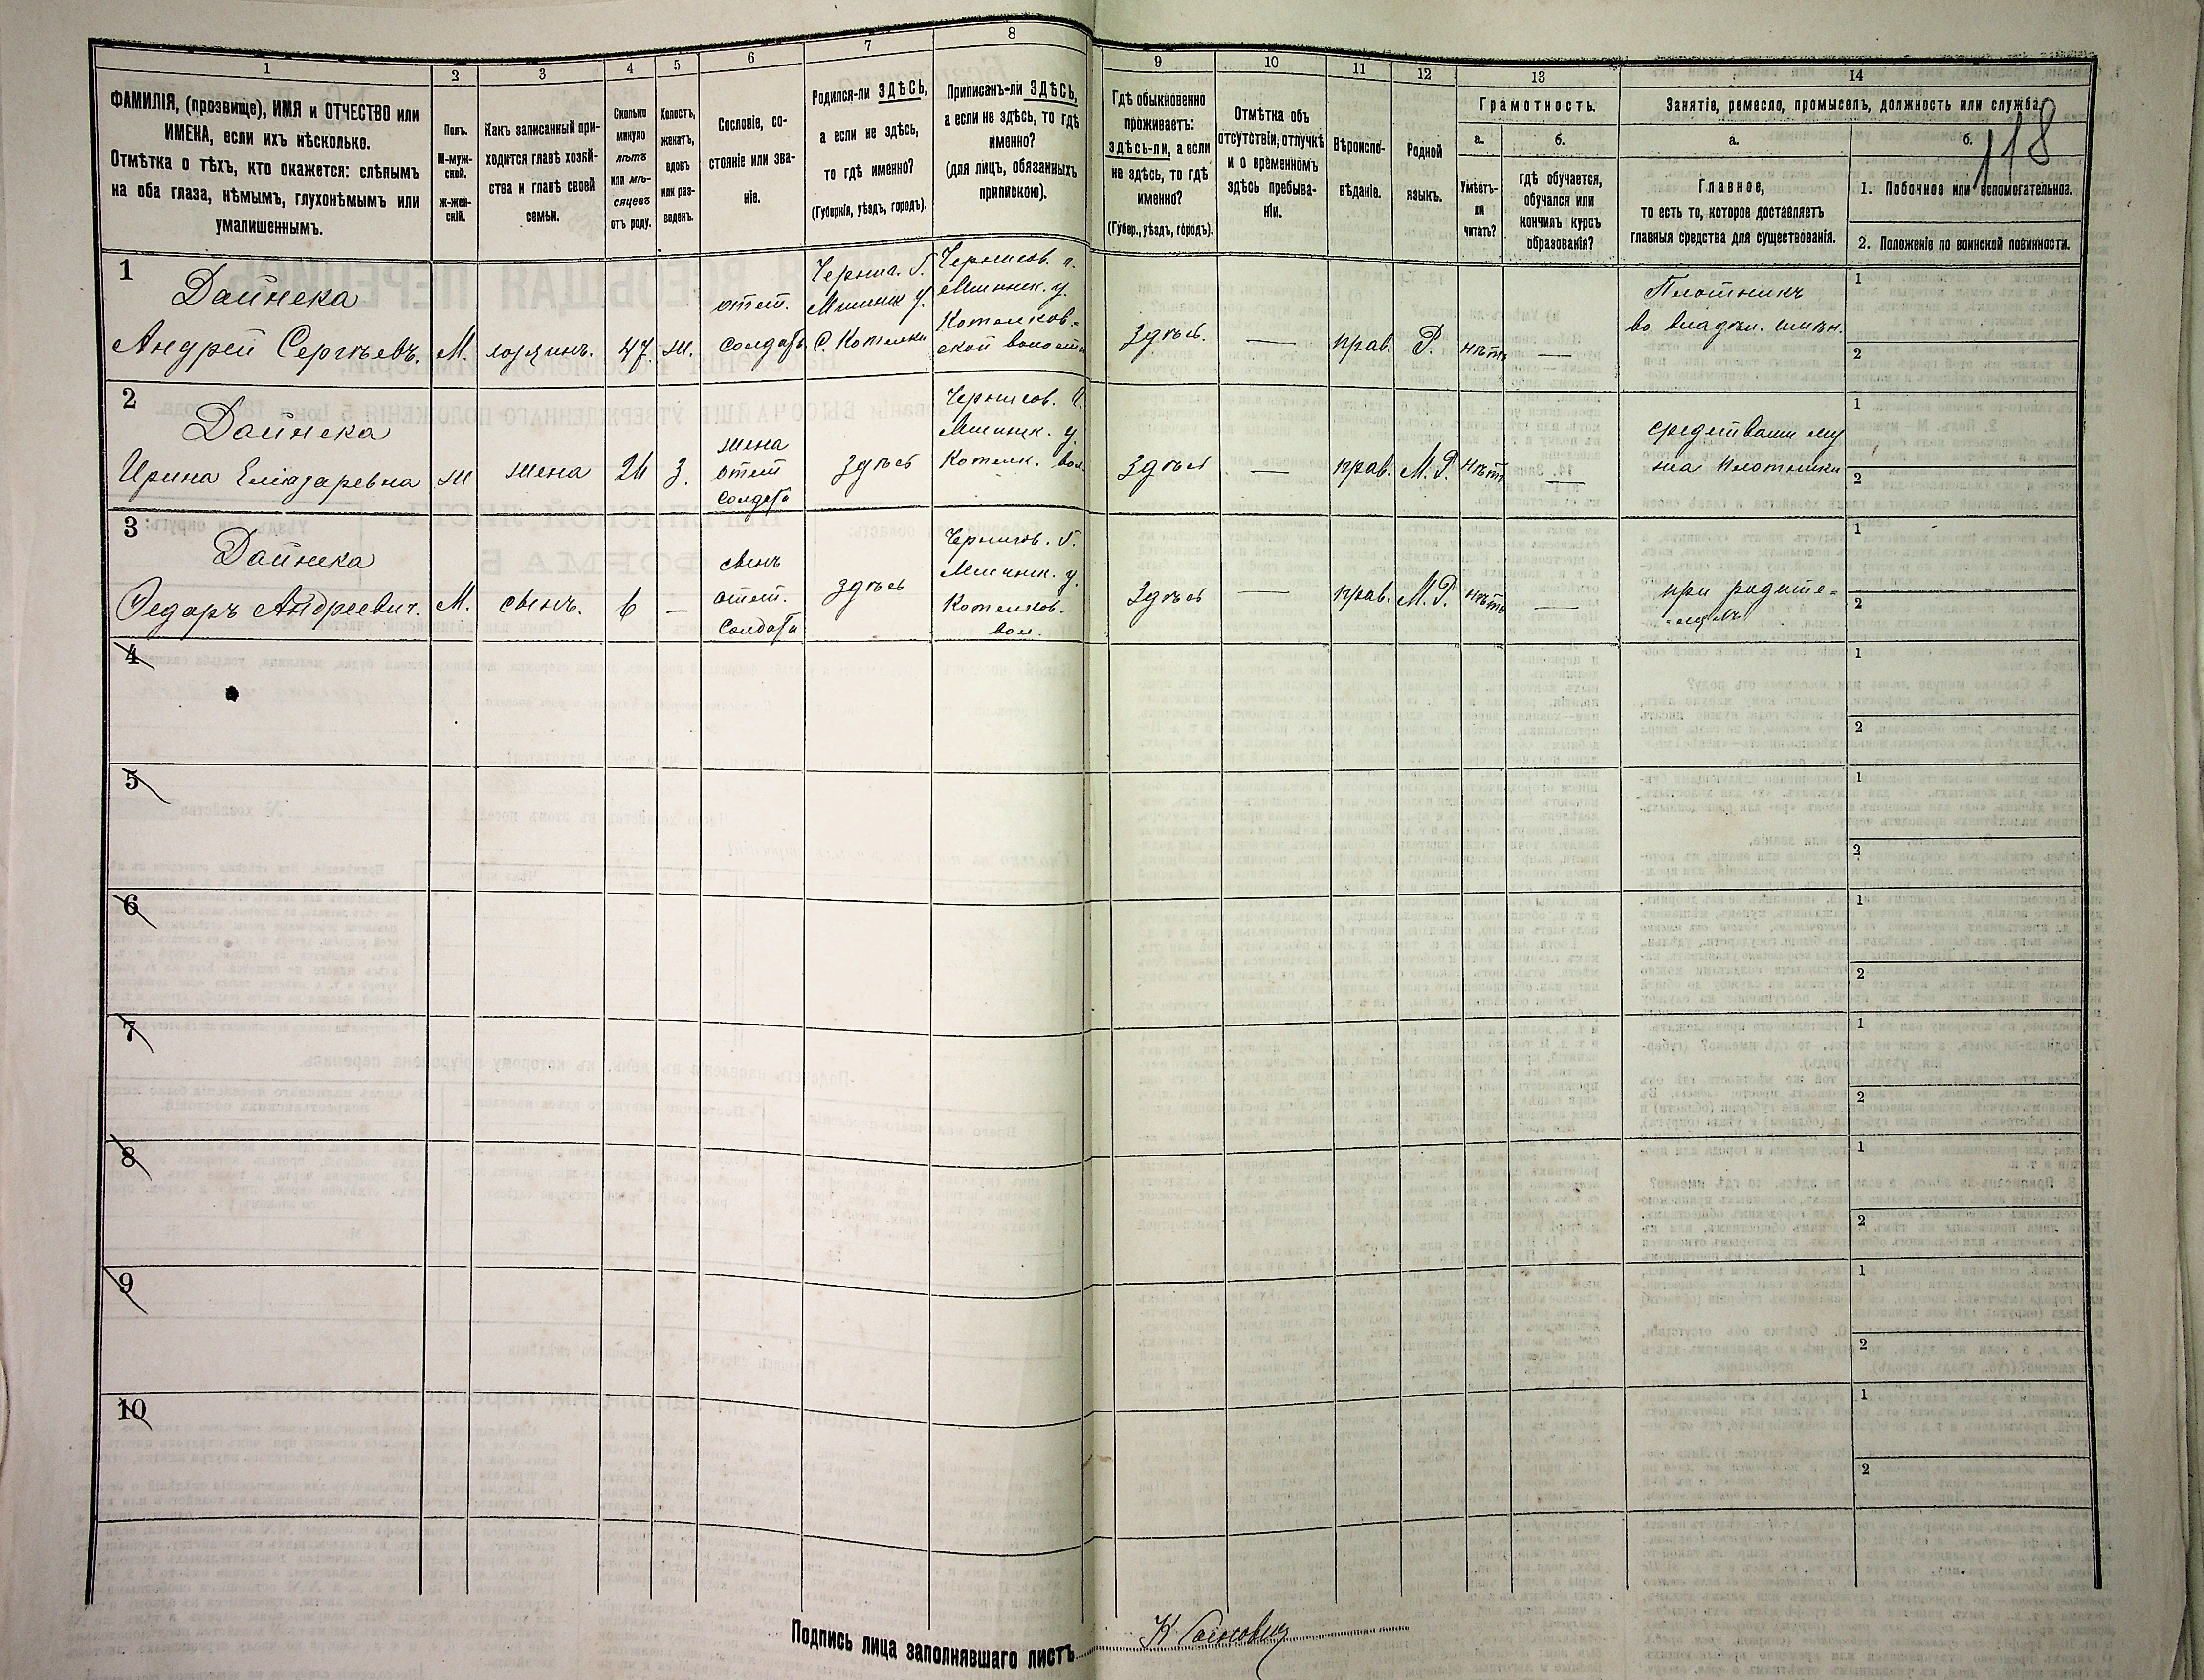 1
2
3
4
5
6
7
8
9
10
11
12
13
14
118
ФАМИЛІЯ, (прозвище), ИМЯ и ОТЧЕСТВО или
ИМЕНА, если ихъ нѣсколько.
Отмѣтка о тѣхъ, кто окажется: слѣпымъ
на оба глаза, нѣмымъ, глухонѣмымъ или
умалишеннымъ.
Полъ.
М-муж-
ской.
ж-жен-
скій.
Какъ записанный при-
ходится главѣ хозяй-
ства и главѣ своей
семьи.
Сколько
минуло
лѣтъ
или мѣ-
сяцевъ
отъ роду.
Холостъ,
женатъ,
вдовъ
или раз-
веденъ.
Сословіе, со-
стояніе или зва-
ніе.
Родился-ли ЗДѢСЬ,
а если не здѣсь,
то гдѣ именно?
(Губернія, уѣздъ, городъ).
Приписанъ-ли ЗДѢСЬ,
а если не здѣсь, то гдѣ
именно?
(для лицъ, обязанныхъ
припискою).
Гдѣ обыкновенно
проживаетъ:
здѣсь-ли, а если
не здѣсь, то гдѣ
именно?
(Губер., уѣздъ, городъ).
Отмѣтка объ
отсутствіи, отлучкѣ
и о временномъ
здѣсь пребыва-
ніи.
Вѣроиспо-
вѣданіе.
Родной
языкъ.
Грамотность.
а.
Умѣетъ-
ли
читать?
б.
гдѣ обучается,
обучался или
кончилъ курсъ
образованія?
Занятіе, ремесло, промыселъ, должность или служба.
а.
Главное,
то есть то, которое доставляетъ
главныя средства для существованія.
б.
1. Побочное или вспомогательное.
2. Положеніе по воинской повинности.
1
Дайнека
Андрей Сергѣевъ.
М.
хозяинъ.
47.
ж.
отст.
солдатъ
Черниг. Г.
Мглинск у.
С. Котляки
Чернигов. г.
Мглинск. у.
Котляков-
ской волости
Здѣсь.
—
прав.
Р.
нѣтъ
—
Плотникъ
во владѣл. имѣн.
1
2
2
Дайнека
Ирина Елизаревна
ж
жена
24
З.
жена
отст
солдата
здѣсь
Чернигов. Г.
Мглинск. у.
Котляк. вол.
Здѣсь
—
прав.
М.Р.
нѣтъ
—
средствами му
жа плотника
1
2
3
Дайнека
Федоръ Андреевич.
М.
сынъ.
6
—
сынъ
отст.
солдата
здѣсь
Чернигов. Г.
Мглинск. у.
Котляков.
вол.
Здѣсь
—
прав.
М.Р.
нѣтъ
—
при родите-
-ляхъ
1
2
4
1
2
5
1
2
6
1
2
7
1
2
8
1
2
9
1
2
10
1
2
Подпись лица заполнявшаго листъ